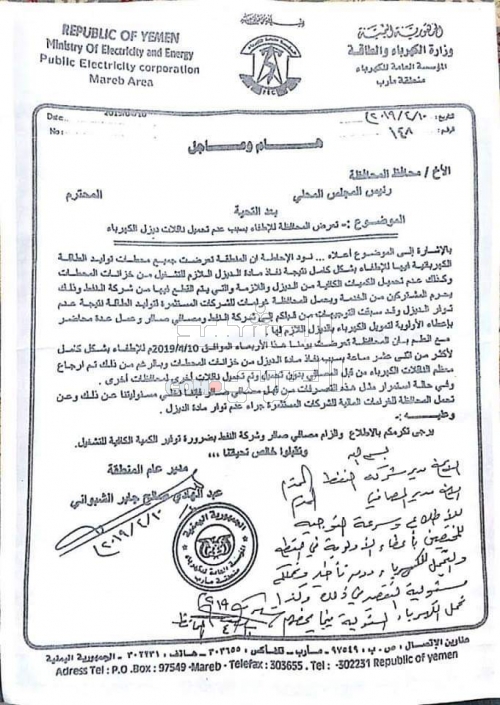 REPUBLIC OF YEMEN
Ministry Of Electricity and Energy
Public Electricity corporation
Mareb Area
الجمهورية اليمنية
وزارة الكهرباء والطاقة
المؤسسة العامة للكهرباء
منطقة مأرب
Date: 2019/04/10
No:
التاريخ: ٢٠١٩/٤/١٠
الرقم: ١٤٨
هـــام وعـــاجل
الأخ / محافظ المحافظة
رئيس المجلس المحلي المحترم
بعد التحية
الموضوع :- تعرض المحافظة للإطفاء بسبب عدم تحميل ناقلات ديزل الكهرباء
بالإشارة إلى الموضوع أعلاه ... نود الإحاطة ان المنطقة تعرضت جميع محطات توليد الطاقة
الكهربائية فيها للإطفاء بشكل كامل نتيجة نفاذ مادة الديزل اللازم للتشغيل من خزانات المحطات
وكذلك عدم تحميل الكميات الكافية من الديزل واللازمة والتي يتم القطع فيها من شركة النفط وذلك
يحرم المشتركين من الخدمة ويحمل المحافظة غرامات للشركات المستثمرة لتوليد الطاقة نتيجة عدم
توفر الديزل وقد سبقت التوجيهات من قبلكم إلى شركة النفط ومصافي صافر وعمل عدة محاضر
بإعطاء الأولوية لتمويل الكهرباء بالديزل اللازم لها
مع العلم بان المحافظة تعرضت يومنا هذا الأربعاء الموافق 2019/4/10م للإطفاء بشكل كامل
لأكثر من اثنى عشر ساعة بسبب نفاذ مادة الديزل من خزانات المحطات وبالرغم من ذلك تم ارجاع
معظم ناقلات الكهرباء من قبل المصافي بدون تحميل وتم تحميل ناقلات اخرى لمحافظات أخرى .
وفي حالة استمرار مثل هذه التصرفات من قبل مصافي صافر فإننا نخلي مسئوليتنا عن ذلك وعن
تحمل المحافظة للغرامات المالية للشركات المستثمرة جراء عدم توفر مادة الديزل .
وعليه :-
يرجى تكرمكم بالاطلاع والزام مصافي صافر وشركة النفط بضرورة توفير الكمية الكافية للتشغيل.
وتقبلوا خالص تحياتنا ،،،
مدير عام المنطقة
عبد الهادي صالح جابر الشبواني
٢٠١٩/٤/١٠
الأخ مدير شركة النفط المحترم
الأخ مدير المصافي المحترم
للاطلاع وسرعة التوجيه
للمختصين بإعطاء الأولوية في
الجمهورية اليمنية
المؤسسة العامة للكهرباء
منطقة مأرب
عناوين الإتصال : ص . ب : ٩٧٥٤٩ - مـأرب - تلفاكس : ٣٠٣٦٥٥ - هاتف : ٣٠٢٢٣١ - الجمهورية اليمنية
Adress Tel : P.O .Box : 97549 -Mareb - Telefax : 303655 . Tel : -302231 Republic of yemen